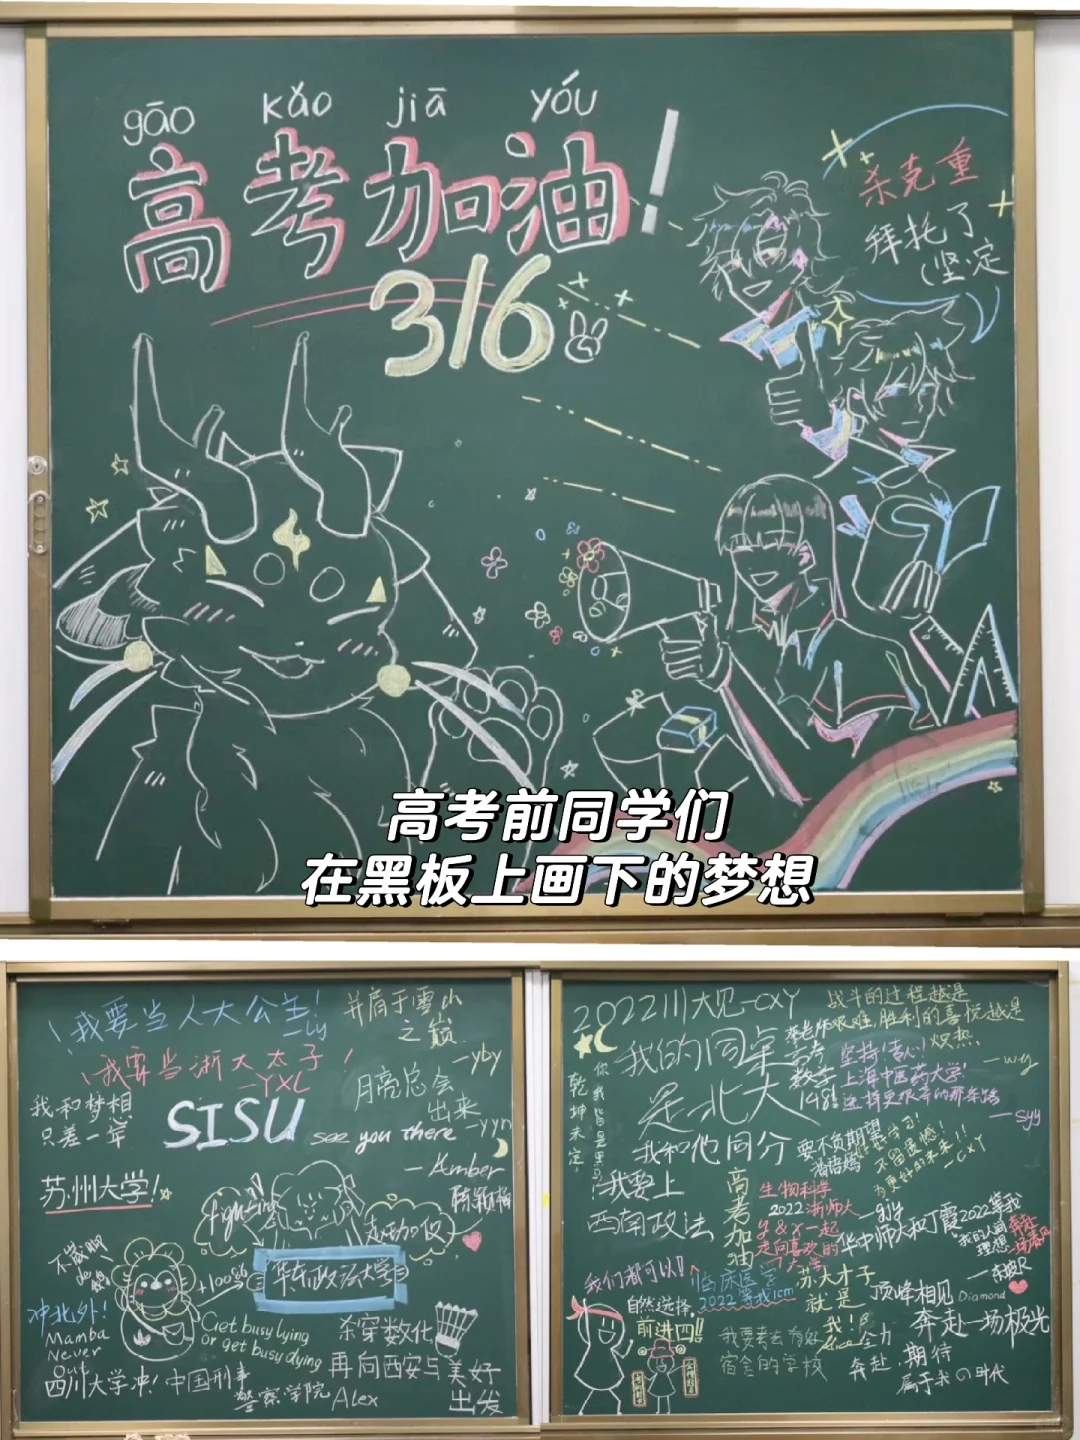 gāo kǎo jiā yóu
高考加油！
316
杀克重
拜托了
（坚定
高考前同学们
在黑板上画下的梦想
我要当人大公主！
ly
我要当浙大太子！
—YXL
我和梦想
只差一年
SISU
see you there
— Amber
并肩于雪山
之巅
—yby
月亮总会
出来
—yyn
苏州大学！
fighting
华东政法大学
+10086
冲北外！
Mamba
Never
Out
Get busy lying
or get busy dying
杀穿数化
再向西安与美好
出发
四川大学冲！
中国刑事
警察学院
Alex
2022川大见—CXY
战斗的过程越是
艰难，胜利的喜悦越是
炽热
—wy
我的同桌
是北大
我和他同分
李老师
高考
数学
148！
坚持！吾心！
上海中医药大学！
—syy
乾坤未定，
你我皆是黑马
要不负期望
不留遗憾！
为更好的未来！！
—CXY
我要上
西南政法
高考加油
生物科学
2022浙师大
—gjy
y&x一起
走向喜欢的
大学
华中师大和丁霞2022等我
我的人间
理想
奔赴
我们都可以！
临床医学
2022等我lcm
苏大才子
就是
我！
顶峰相见
Diamond
奔赴一场极光
自然选择，
前进四！！
我要去有好
宿舍的学校
全力
奔赴，期待
属于我の时代